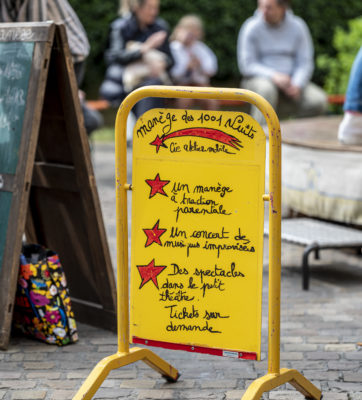 manège des 1001 Nuits
Un manège
à traction
parentale
Un concert de
musiques improvisées
Des spectacles
dans le p'tit
théâtre.
Tickets sur
demande